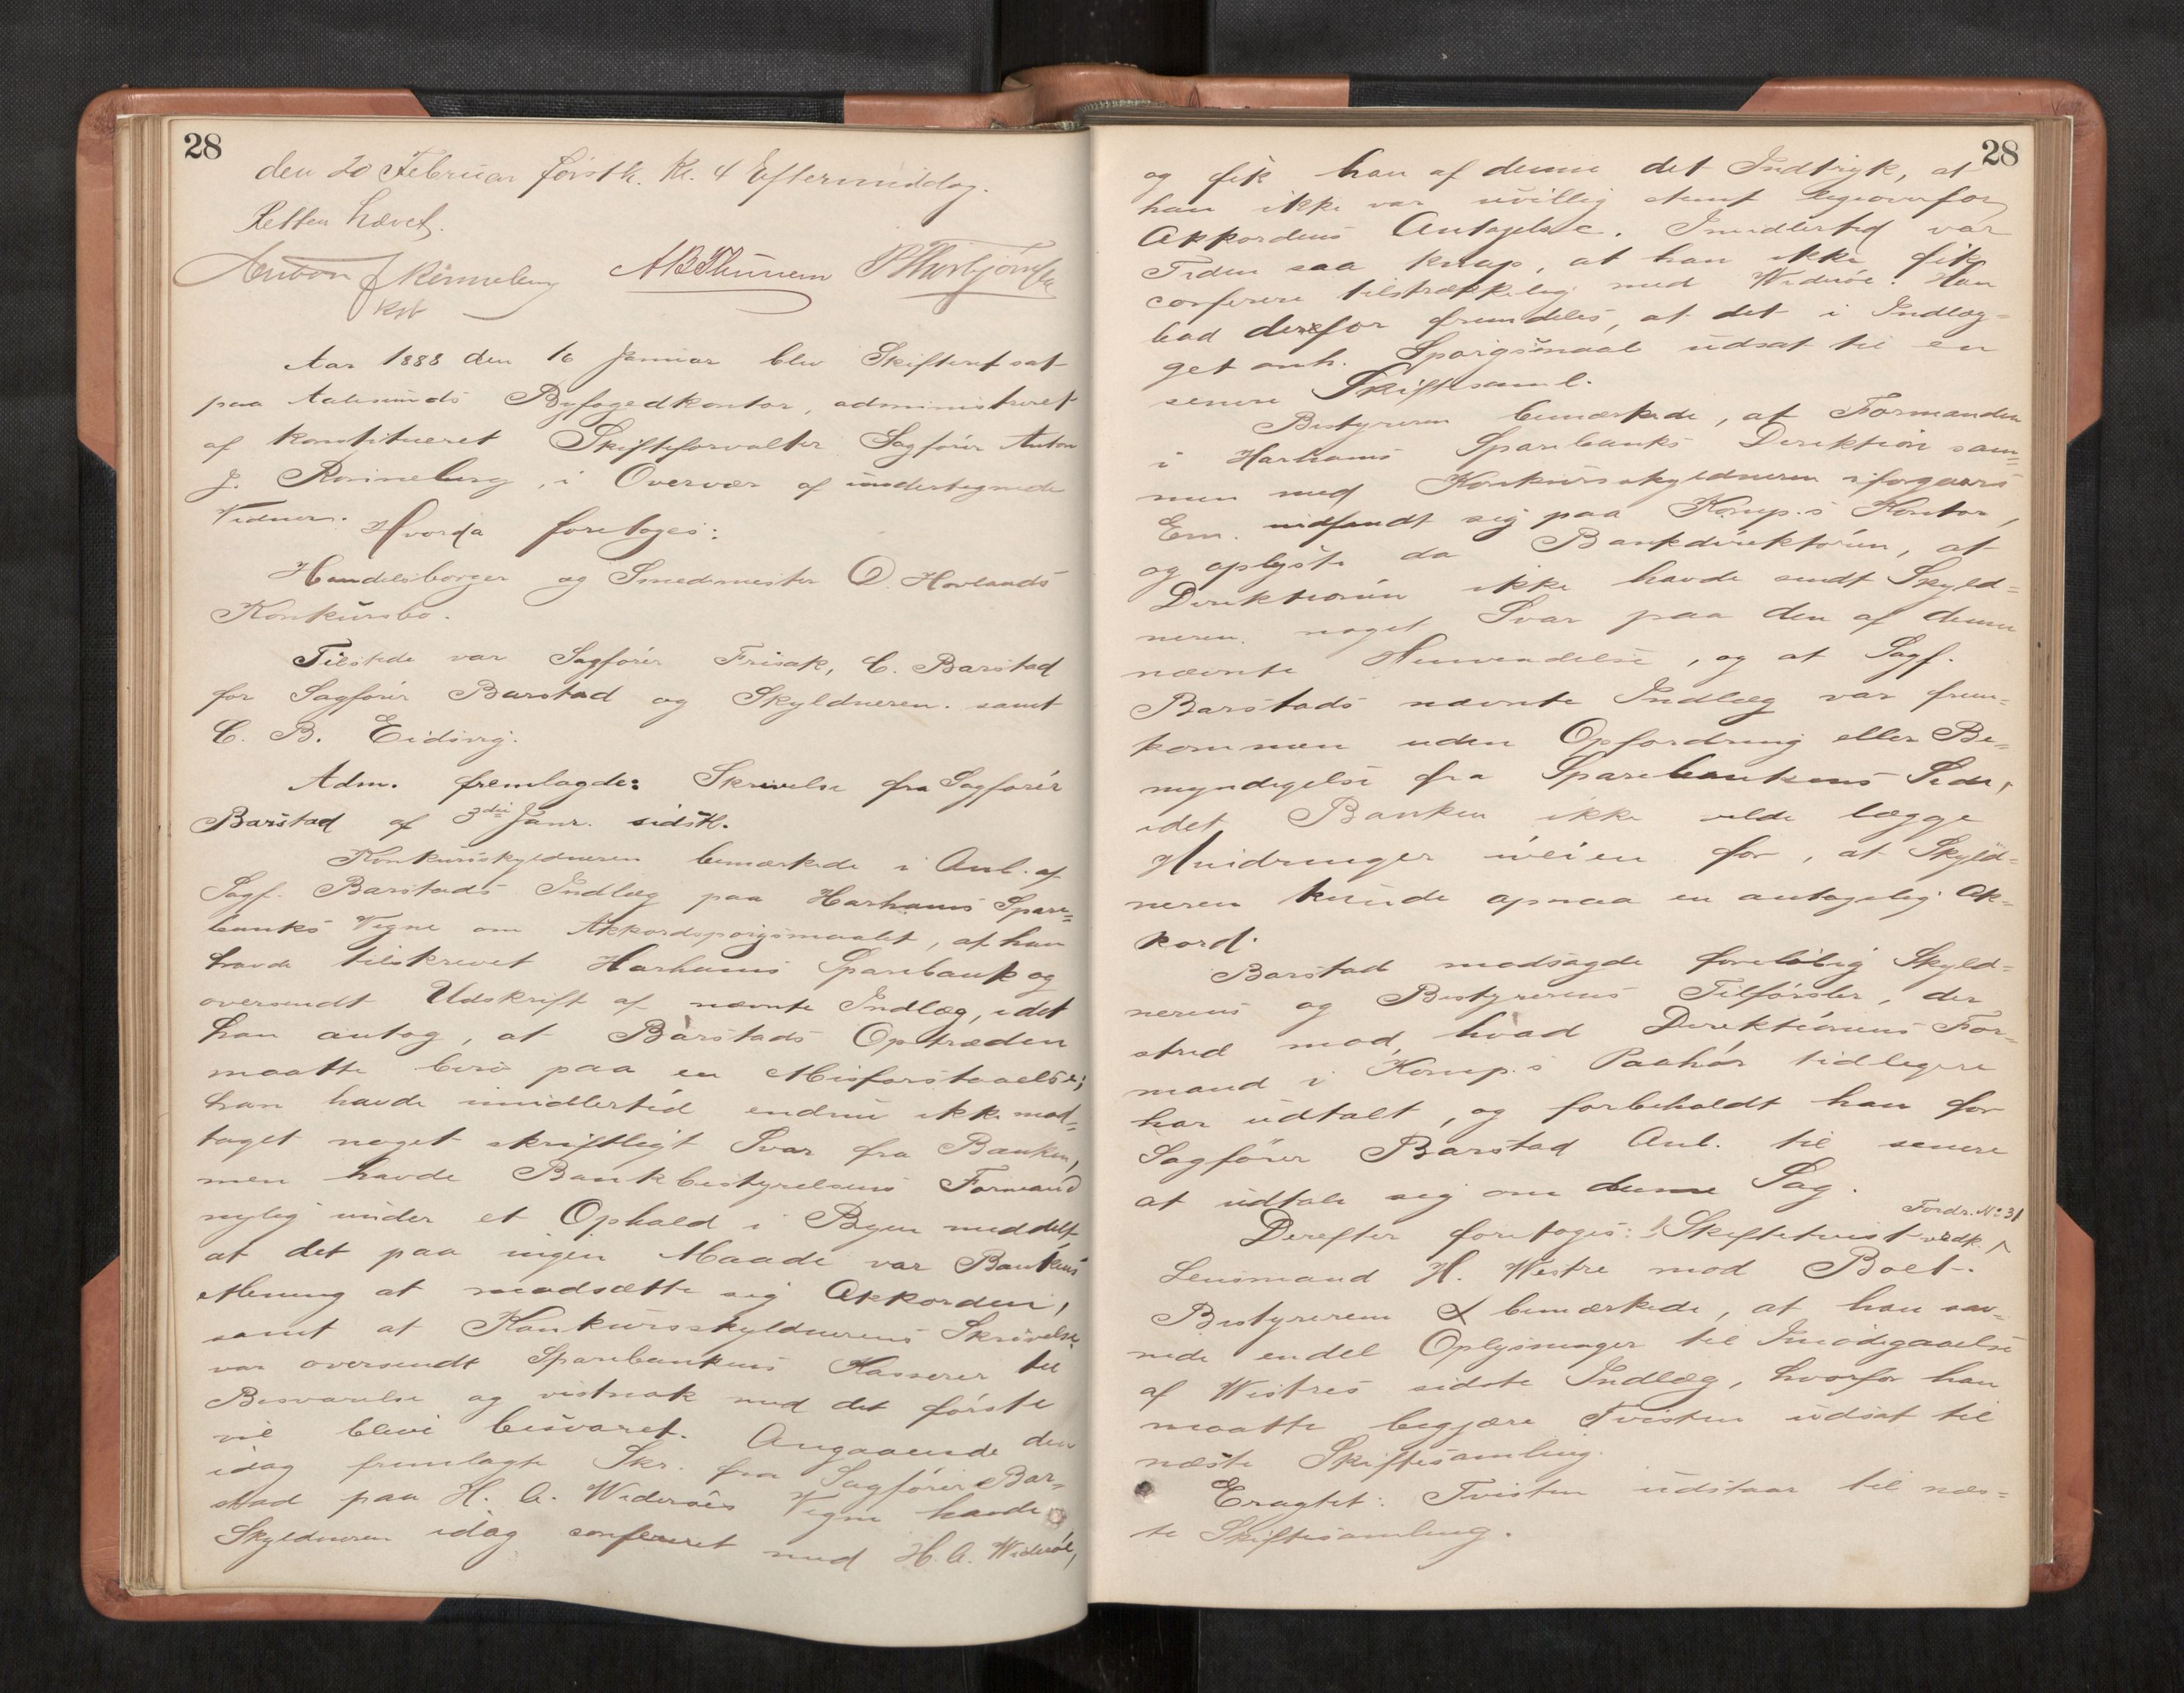 28
den 20 Februar førstk. Kl. 4 Eftermiddag.
Retten hævet.
Anton J Rønneberg A B Thunem P Thorbjørnsen
kst
Aar 1888 den 16 Januar blev Skifteret sat
paa Aalesunds Byfogedkontor, administreret
af konstitueret Skifteforvalter Sagfører Anton
J. Rønneberg, i Overvær af undertegnede
Vidner.
Hvorda foretoges:
Handelsborger og Smedemester O. Hovlands
Konkursbo.
Tilstede var Sagfører Frisak, C. Barstad
for Sagfører Barstad og Skyldneren. samt
C. B. Eidsvig.
Adm. fremlagde: Skrivelse fra Sagfører
Barstad af 3die Janr. sidstl.
Konkursskyldneren bemærkede i Anl. af
Sagf. Barstads Indlæg paa Harhams Spare=
banks Vegne om Akkordspørgsmaalet, at han
havde tilskrevet Harhams Sparebank og
oversendt Udskrift af nævnte Indlæg, idet
han antog, at Barstads Optræden
maatte bero paa en Misforstaaelse;
han havde imidlertid endnu ikke mod=
taget noget skriftligt Svar fra Banken,
men havde Bankbestyrelsens Formand
nylig under et Ophold i Byen meddelt,
at det paa ingen Maade var Bankens
Mening at modsætte sig Akkorden,
samt at Konkursskyldnerens Skrivelse
var oversendt Sparebankens Kasserer til
Besvarelse og vistnok med det første
vil blive besvaret. Angaaende den
idag fremlagte Skr. fra Sagfører Bar=
stad paa H. A. Widerøes Vegne havde
Skyldneren idag confereret med H. A. Widerøe,
28
og fik han af denne det Indtryk, at
han ikke var uvillig stemt ligeoverfor
Akkordens Antagelse. Imidlertid var
Tiden saa knap, at han ikke fik
conferere tilstrækkelig med Widerøe. Han
bad derfor fremdeles, at det i Indlæg=
get omh. Spørgsmaal udsat til en
senere Skiftesaml.
Bestyreren bemærkede, at Formanden
i Harhams Sparebanks Direktion sam=
men med Konkursskyldneren iforgaars
Em. indfandt sig paa Komp.s Kontor,
og oplyste da Bankdirektøren, at
Direktionen ikke havde sendt Skyld=
neren noget Svar paa den af denne
nævnte Henvendelse, og at Sagf.
Barstads nævnte Indlæg var frem=
kommen uden Opfordring eller Be=
myndigelse fra Sparebankens Side,
idet Banken ikke vilde lægge
Hindringer iveien for, at Skyld=
neren kunde opnaa en antagelig Ak=
kord.
Barstad modsagde foreløbig Skyld=
nerens og Bestyrerens Tilførsler, der
stred mod, hvad Direktionens For=
mand i Komp.s Paahør tidligere
har udtalt, og forbeholdt han for
Sagfører Barstad Anl. til senere
at udtale sig om denne Sag.
Fordr. No 31
Derefter foretoges: Skiftetvist vedk.
Lensmand H. Westre mod Boet.
Bestyreren bemærkede, at han sav=
nede endel Oplysninger til Imødegaaelse
af Westres sidste Indlæg, hvorfor han
maatte begjære Tvisten udsat til
næste Skiftesamling.
Eragtet: Tvisten udstaar til næs=
te Skiftesamling.